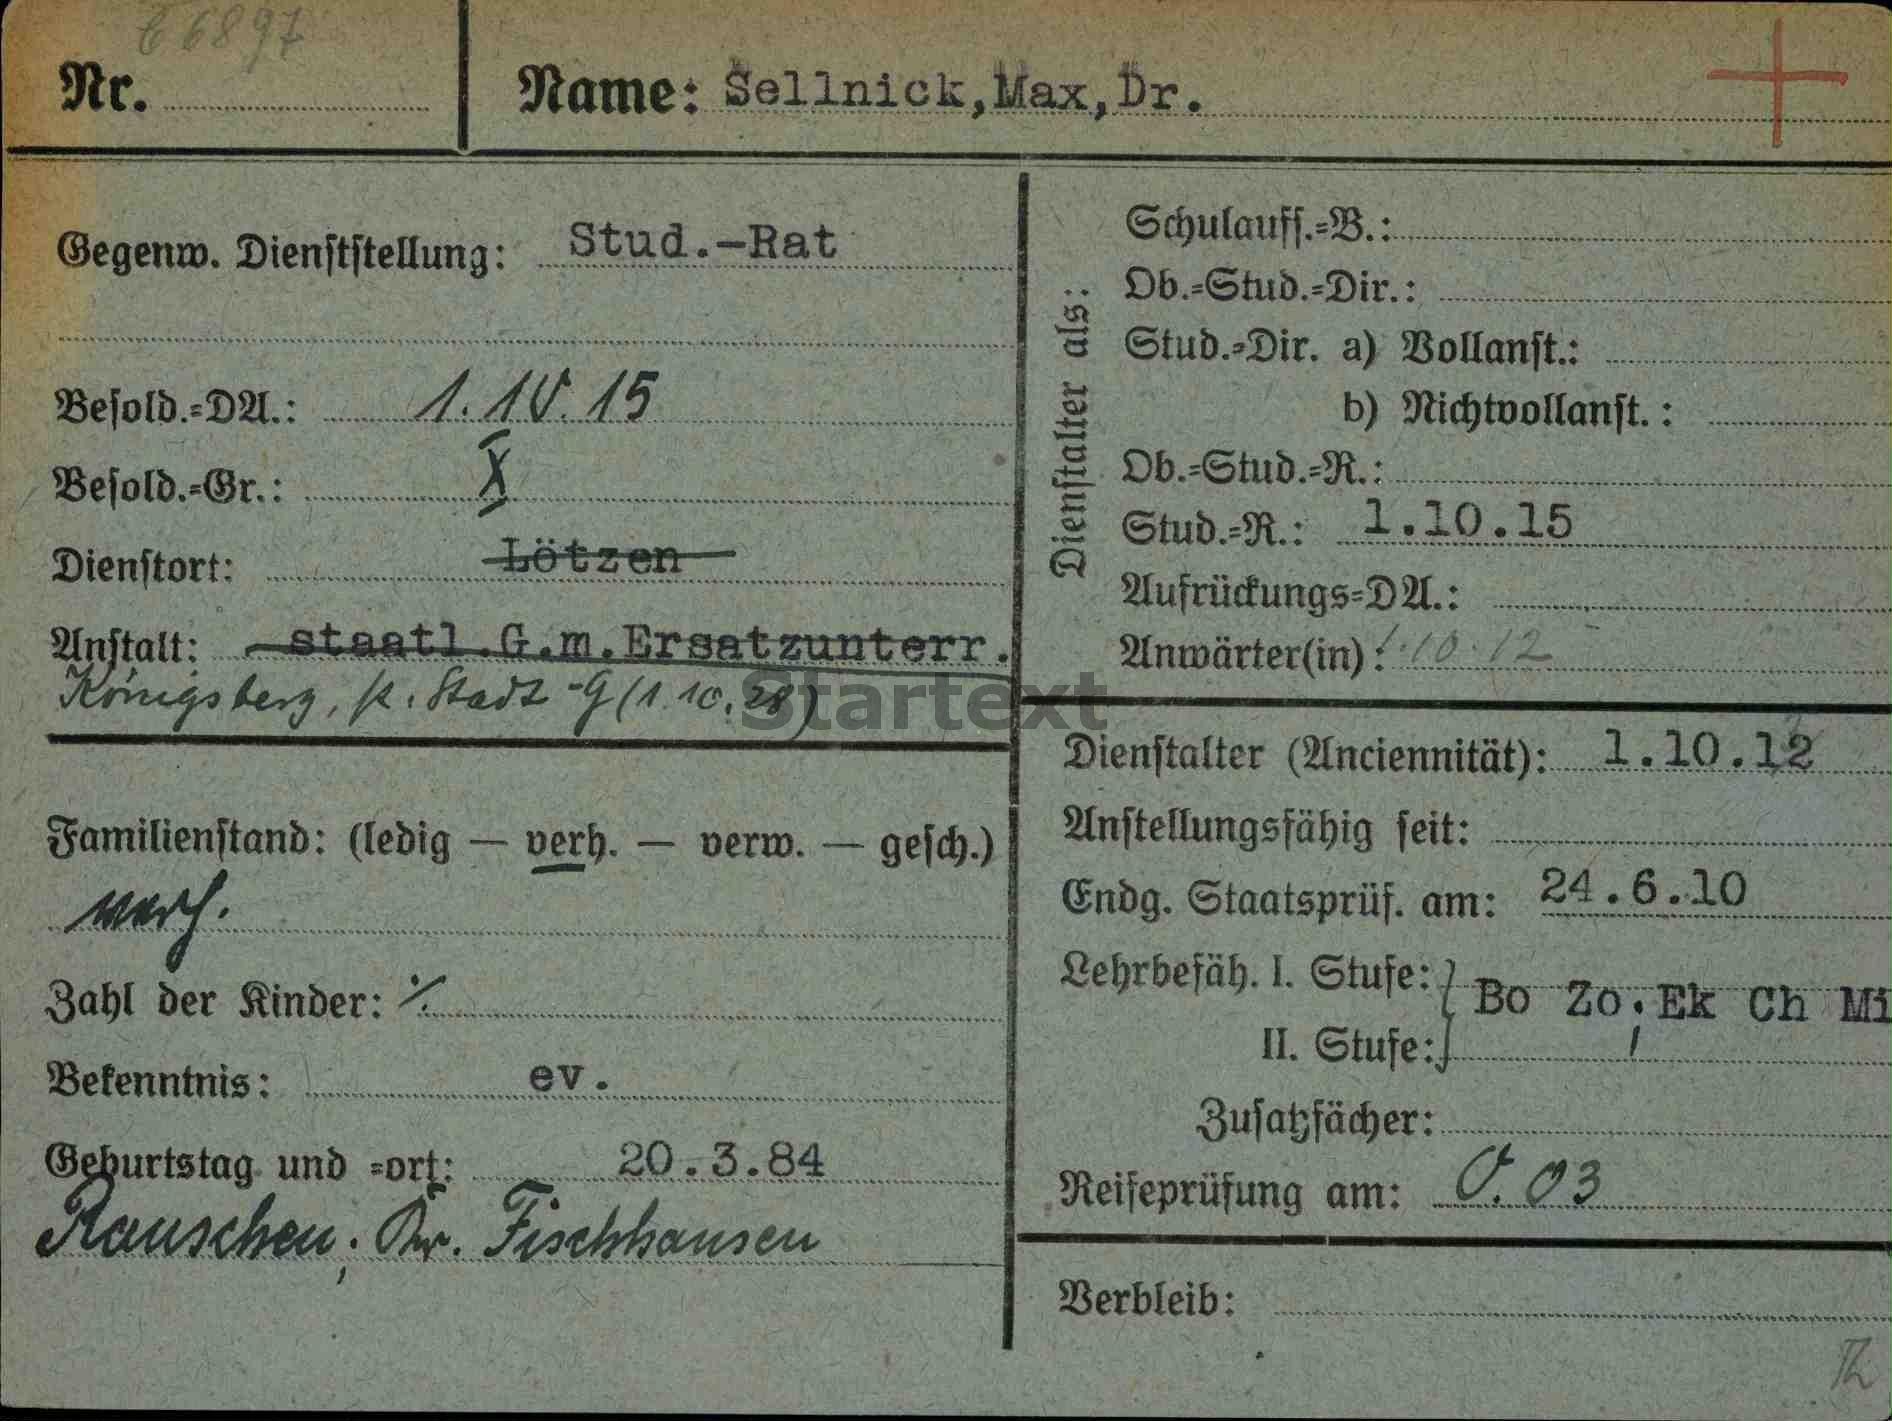 6897
Nr.
Name: Sellnick,Max,Dr.
Gegenw. Dienststellung: Stud.-Rat
Besold.=DA.: 1. 10. 15
Besold.=Gr.: X
Dienstort: Lötzen
Anstalt: staatl.G.m.Ersatzunterr.
Königsberg, . Stadt -G (1.10.28)
Familienstand: (ledig — verh. — verw. — gesch.)
verh.
Zahl der Kinder: ⁒
Bekenntnis: ev.
Geburtstag und =ort: 20.3.84
Rauschen, Kr. Fischhausen
Dienstalter als:
Schulauff.=B.:
Ob.=Stud.=Dir.:
Stud.=Dir. a) Vollanst.:
b) Nichtvollanst.:
Ob.=Stud.=R.:
Stud.=R.: 1.10.15
Aufrückungs=DA.:
Anwärter(in): 1.10.12
Dienstalter (Anciennität): 1.10.12
Anstellungsfähig seit:
Endg. Staatsprüf. am: 24.6.10
Lehrbefäh. I. Stufe: } Bo Zo; Ek Ch Mi
II. Stufe:
Zusatzfächer:
Reifeprüfung am: O. 03
Verbleib:
Startext